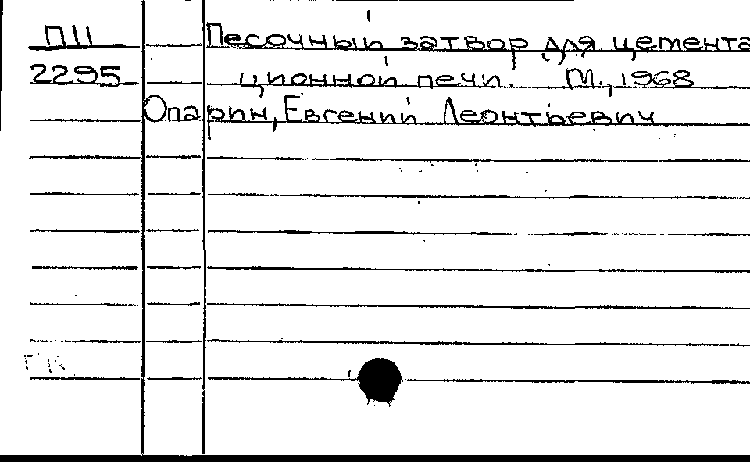 П11 Песочный затвор для цемента
2295 ционной печи. М., 1968
Опарин, Евгений Леонтьевич
ГК